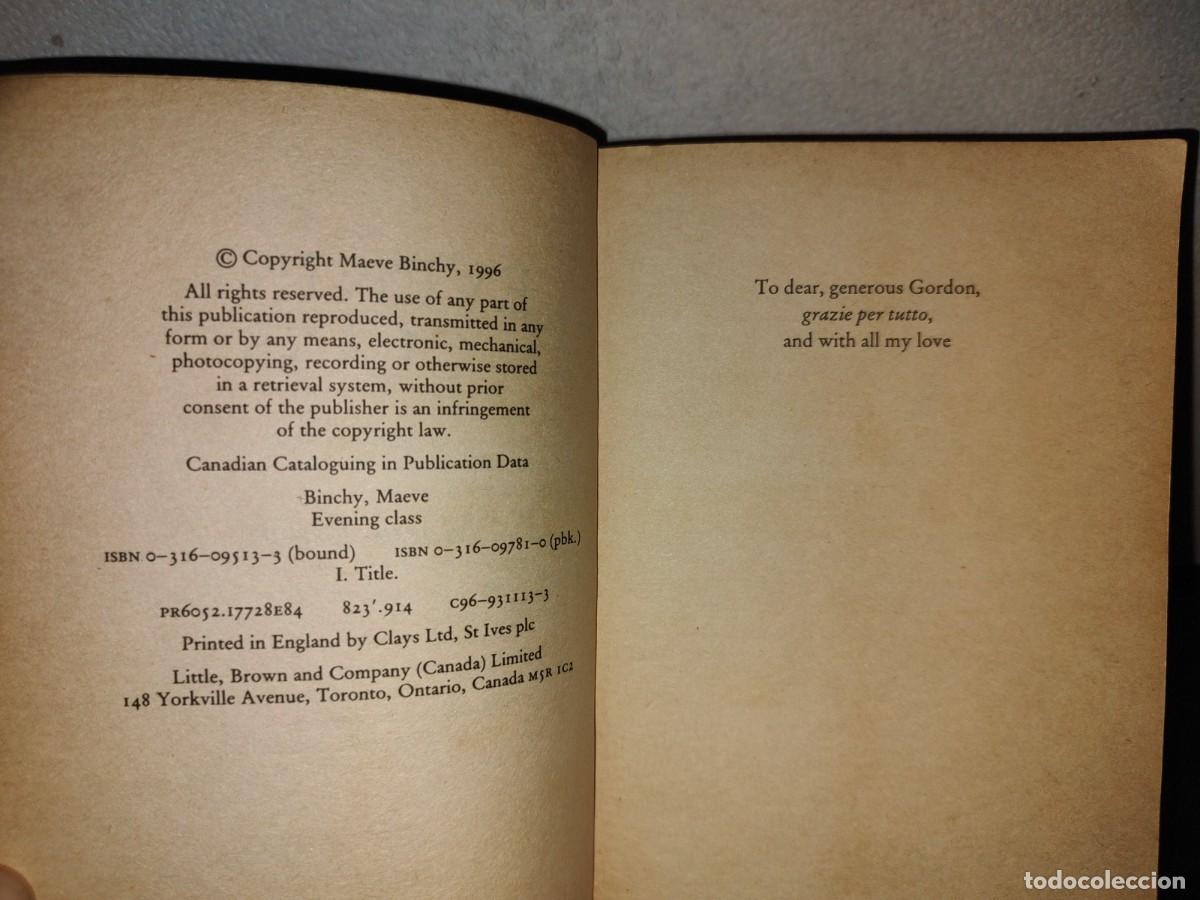 © Copyright Maeve Binchy, 1996
All rights reserved. The use of any part of
this publication reproduced, transmitted in any
form or by any means, electronic, mechanical,
photocopying, recording or otherwise stored
in a retrieval system, without prior
consent of the publisher is an infringement
of the copyright law.
Canadian Cataloguing in Publication Data
Binchy, Maeve
Evening class
ISBN 0-316-09513-3 (bound) ISBN 0-316-09781-0 (pbk.)
I. Title.
PR6052.17728E84 823'.914 C96-931113-3
Printed in England by Clays Ltd, St Ives plc
Little, Brown and Company (Canada) Limited
148 Yorkville Avenue, Toronto, Ontario, Canada M5R 1C2
To dear, generous Gordon,
grazie per tutto,
and with all my love
todocoleccion